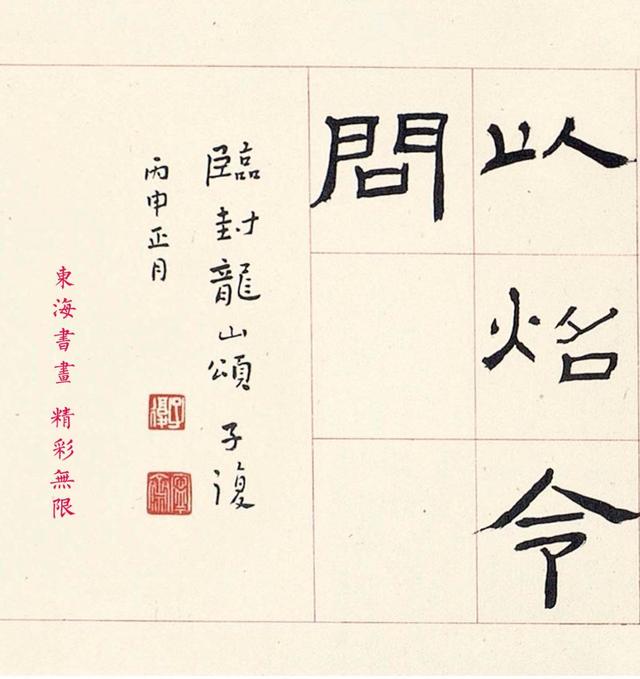 以炤令
問
臨封龍山頌 子復
丙申正月
東海書畫 精彩無限